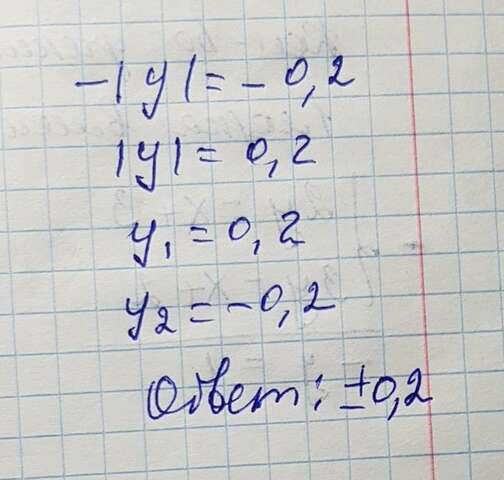 -|y|=-0,2
|y|=0,2
y₁=0,2
y₂=-0,2
Ответ: ±0,2